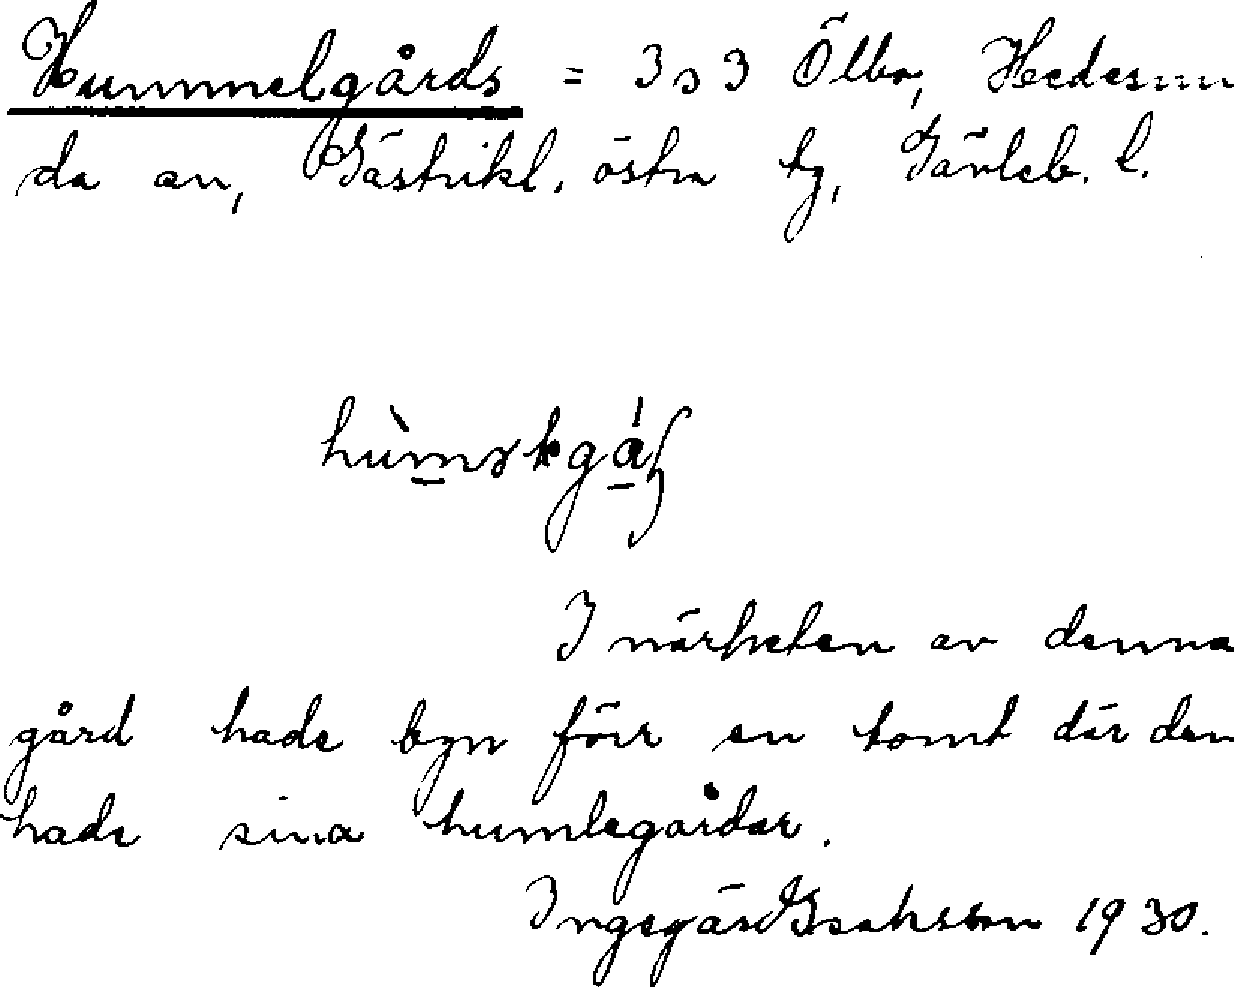 Hummelgårds = 3 o 3 Ölbo, Hedesun
da sn, Gästrikl. östra tg, Gävleb. l.
I närheten av denna
gård hade byn förr en tomt där den
hade sina humlegårdar.
Ingegärd Isaksson 1930.